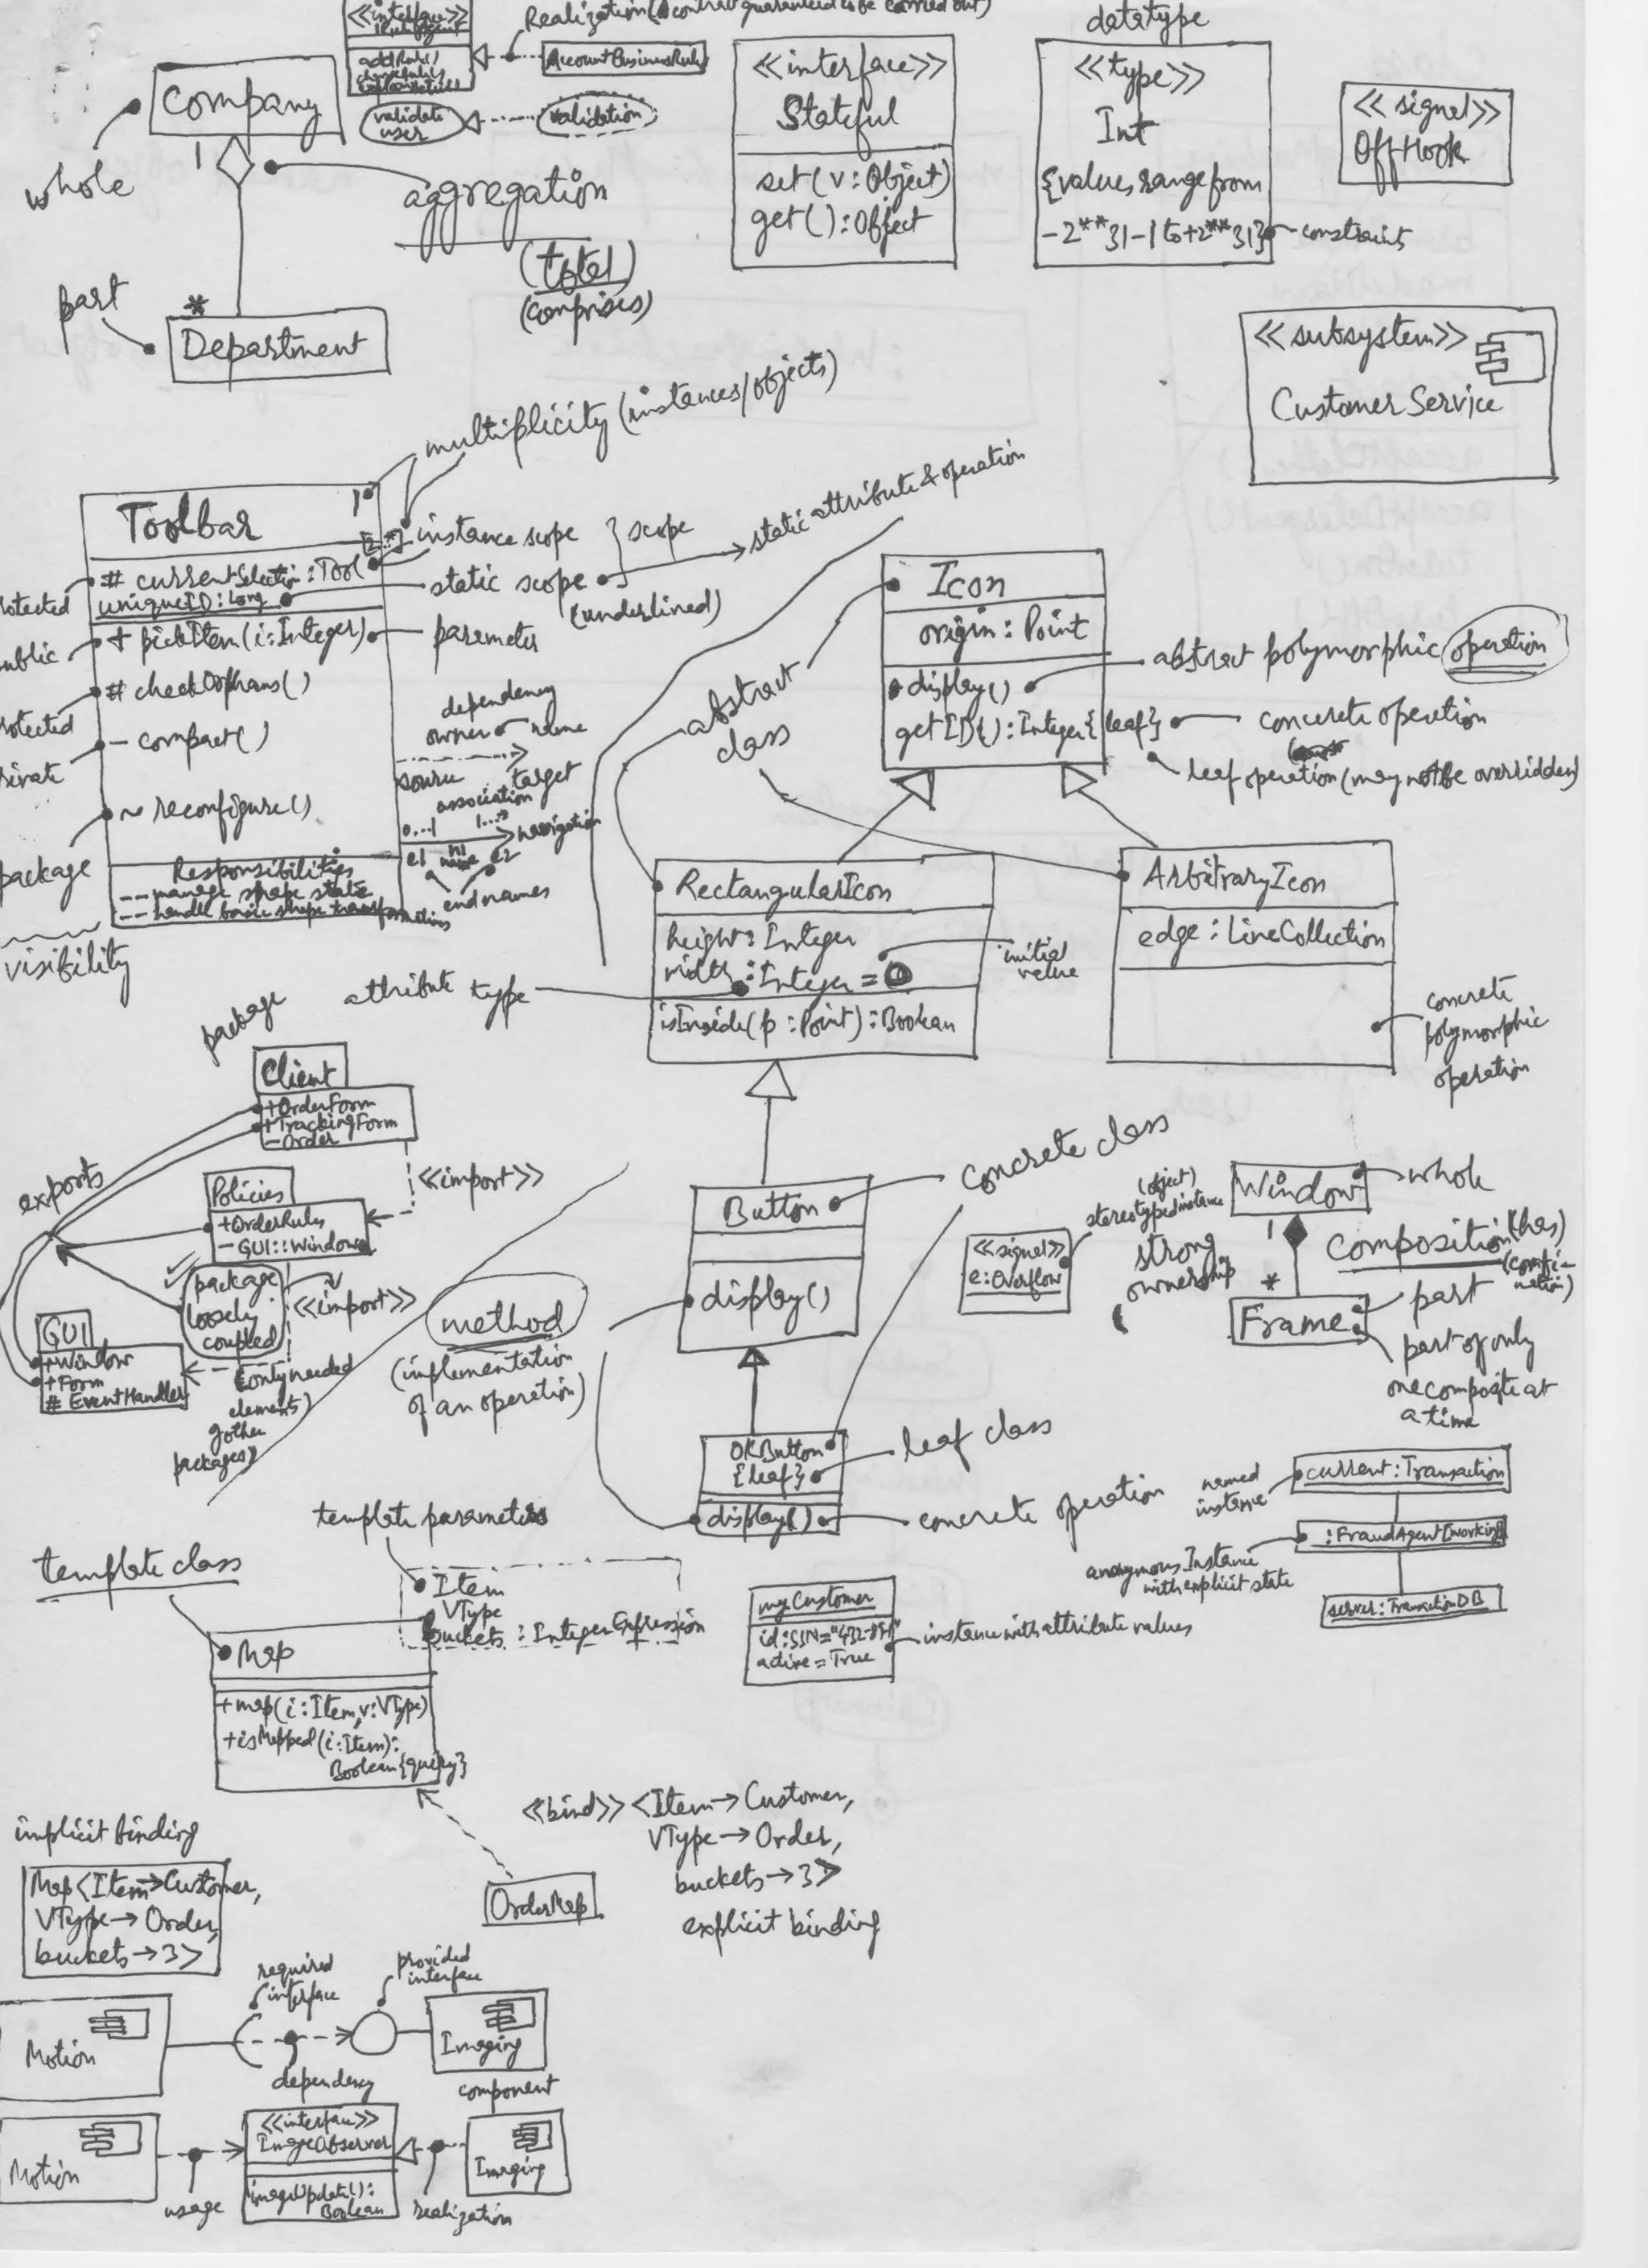 <<interface>>
Realization (a contract guaranteed to be carried out)
addRule()
AccountBusinessRule
validate user
validation
Company
whole
1
aggregation
(total)
(comprises)
part
*
Department
<<interface>>
Stateful
set(v:Object)
get():Object
datatype
<<type>>
Int
{values range from
-2**31-1 to +2**31}
constraint
<<signal>>
OffHook
<<subsystem>>
Customer Service
multiplicity (instances/objects)
Toolbar
1
[2..*]
# currentSelection:Tool
uniqueID:Long
+ pickItem(i:Integer)
# checkOrphans()
- compact()
~ reconfigure()
Responsibilities
-- manage shape state
-- handle basic shape transformations
otected
ublic
rotected
rivate
package
visibility
instance scope
static scope
(underlined)
scope
static attribute & operation
parameter
dependency
owner name
source target
association
0...1
1...*
navigation
e1 name e2
end names
Icon
origin: Point
display()
getID():Integer{leaf}
abstract class
abstract polymorphic operation
concrete operation
leaf operation (may not be overridden)
RectangularIcon
height:Integer
width:Integer = 0
isInside(p:Point):Boolean
initial value
attribute type
ArbitraryIcon
edge:LineCollection
concrete
polymorphic
operation
package
Client
+OrderForm
+TrackingForm
-Order
exports
<<import>>
Policies
+OrderRules
-GUI::Window
package
loosely
coupled
<<import>>
GUI
+Window
+Form
# EventHandler
(only needed
elements
of other
packages)
Button
display()
concrete class
method
(implementation
of an operation)
(object)
stereotyped instance
<<signal>>
e:Overflow
strong
ownership
Window
whole
1
composition (has)
*
Frame
part
part of only
one composite at
a time
OKButton
{leaf}
display()
leaf class
concrete operation
named instance
current:Transaction
:FraudAgent[working]
anonymous Instance
with explicit state
server:TransactionDB
template parameters
template class
Item
VType
buckets : IntegerExpression
Map
+map(i:Item,v:VType)
+isMapped(i:Item):
Boolean{query}
myCustomer
active=True
instance with attribute values
implicit binding
Map<Item→Customer,
VType→Order,
buckets→3>
<<bind>> <Item→Customer,
VType→Order,
buckets→3>
explicit binding
OrderMap
required interface
provided interface
Motion
dependency
Imaging
component
Motion
usage
<<interface>>
ImageObserver
imageUpdate():
Boolean
realization
Imaging